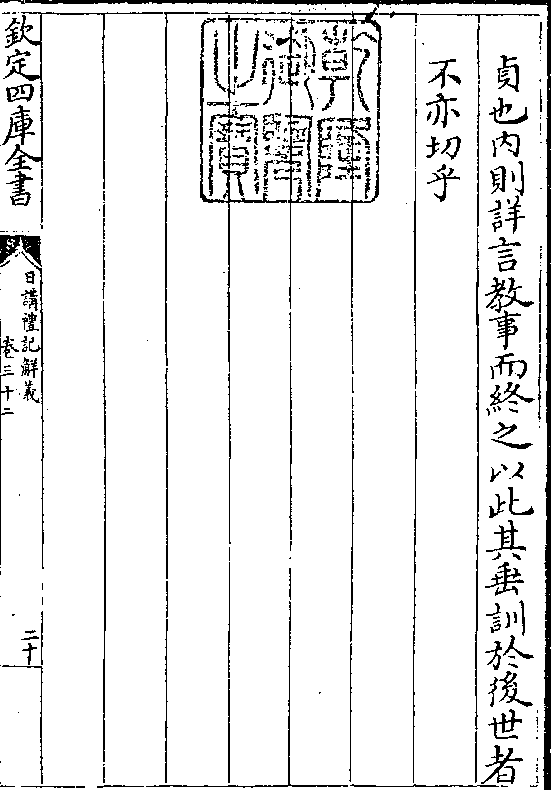 貞也内則詳言教事而終之以此其垂訓於後世者
不亦切乎
乾隆御覽之寶
欽定四庫全書
日講禮記解義
卷三十二
二十